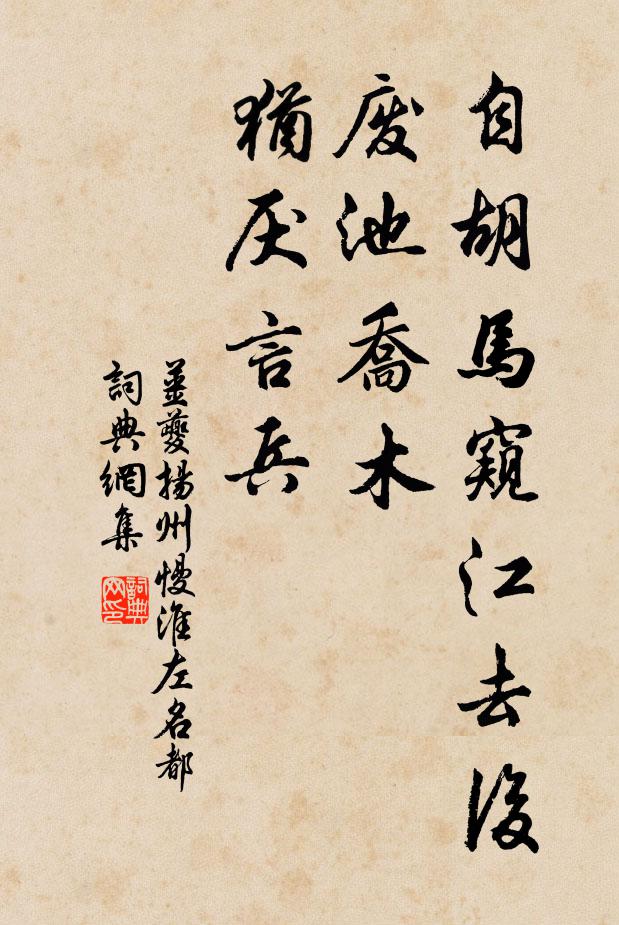 自胡馬窺江去後
廢池喬木
猶厌言兵
薑夔揚州慢淮左名都
詞典網集
詞典網印